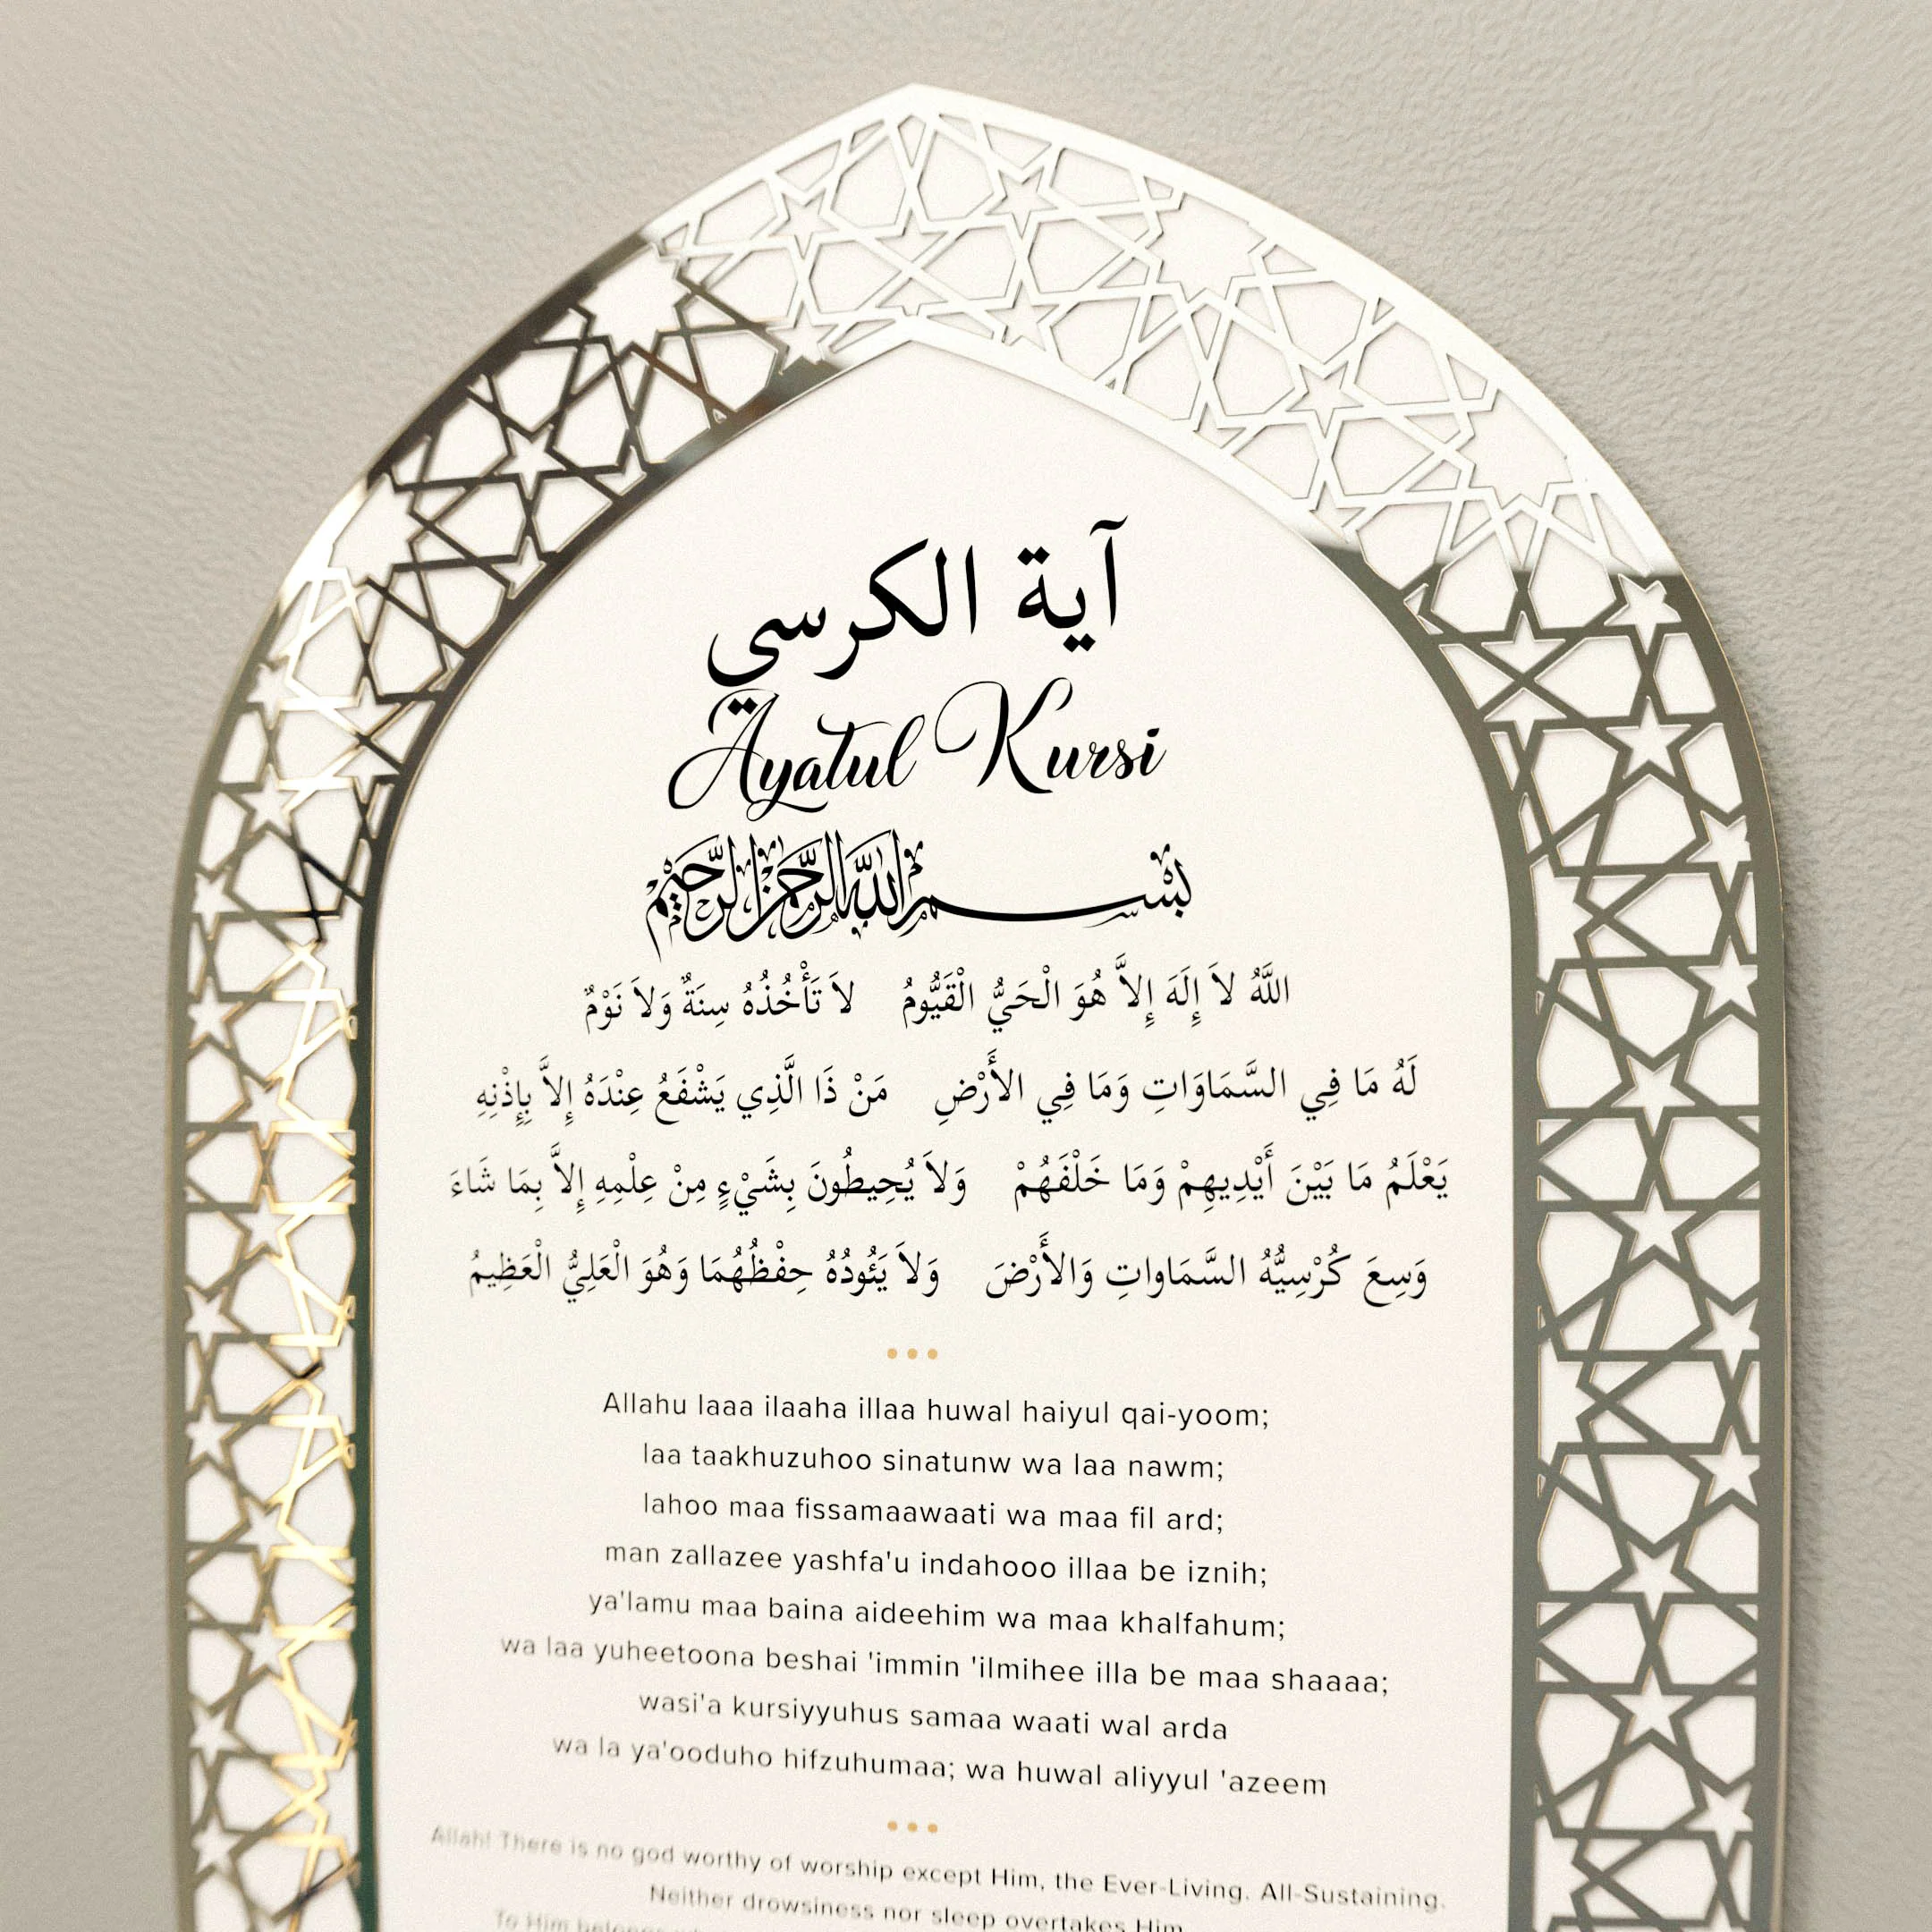 آية الكرسي
Ayatul Kursi
بسم الله الرحمن الرحيم
اللَّهُ لاَ إِلَهَ إِلاَّ هُوَ الْحَيُّ الْقَيُّومُ لاَ تَأْخُذُهُ سِنَةٌ وَلاَ نَوْمٌ
لَهُ مَا فِي السَّمَاوَاتِ وَمَا فِي الأَرْضِ مَنْ ذَا الَّذِي يَشْفَعُ عِنْدَهُ إِلاَّ بِإِذْنِهِ
يَعْلَمُ مَا بَيْنَ أَيْدِيهِمْ وَمَا خَلْفَهُمْ وَلاَ يُحِيطُونَ بِشَيْءٍ مِنْ عِلْمِهِ إِلاَّ بِمَا شَاءَ
وَسِعَ كُرْسِيُّهُ السَّمَاواتِ وَالأَرْضَ وَلاَ يَئُودُهُ حِفْظُهُمَا وَهُوَ الْعَلِيُّ الْعَظِيمُ
Allahu laaa ilaaha illaa huwal haiyul qai-yoom;
laa taakhuzuhoo sinatunw wa laa nawm;
lahoo maa fissamaawaati wa maa fil ard;
man zallazee yashfa'u indahooo illaa be iznih;
ya'lamu maa baina aideehim wa maa khalfahum;
wa laa yuheetoona beshai 'immin 'ilmihee illa be maa shaaaa;
wasi'a kursiyyuhus samaa waati wal arda
wa la ya'ooduho hifzuhumaa; wa huwal aliyyul 'azeem
Allah! There is no god worthy of worship except Him, the Ever-Living, All-Sustaining.
Neither drowsiness nor sleep overtakes Him.
To Him belongs